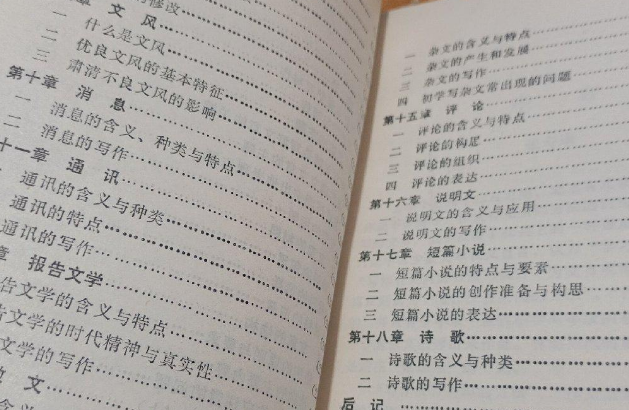 修改
章 文 风
一 什么是文风
二 优良文风的基本特征
三 肃清不良文风的影响
第十章 消 息
一 消息的含义、种类与特点
二 消息的写作
十一章 通 讯
通讯的含义与种类
通讯的特点
通讯的写作
章 报告文学
告文学的含义与特点
文学的时代精神与真实性
文学的写作
文
一 杂文的含义与特点
二 杂文的产生和发展
三 杂文的写作
四 初学写杂文常出现的问题
第十五章 评 论
一 评论的含义与特点
二 评论的构思
三 评论的组织
四 评论的表达
第十六章 说明文
一 说明文的含义与应用
二 说明文的写作
第十七章 短篇小说
一 短篇小说的特点与要素
二 短篇小说的创作准备与构思
三 短篇小说的表达
第十八章 诗 歌
一 诗歌的含义与种类
二 诗歌的写作
后 记